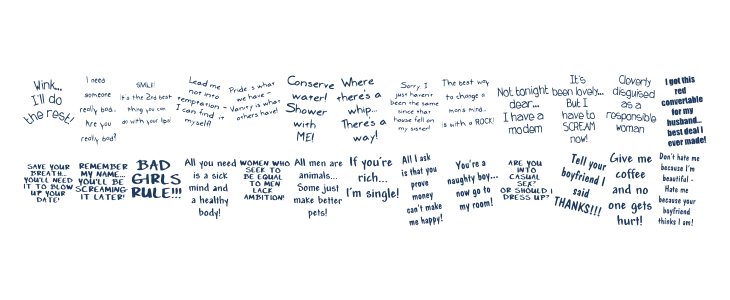 Wink...
I'll do
the rest!
I need
someone
really bad...
Are you
really bad?
SMILE!
It's the 2nd best
thing you can
do with your lips!
Lead me
not into
temptation -
I can find it
myself!
Pride is what
we have -
Vanity is what
others have!
Conserve
water!
Shower
with
ME!
Where
there's a
whip...
There's a
way!
Sorry, I
just haven't
been the same
since that
house fell on
my sister!
The best way
to change a
mans mind...
is with a ROCK!
Not tonight
dear...
I have a
modem
It's
been lovely...
But I
have to
SCREAM
now!
Cleverly
disguised
as a
responsible
woman
I got this
red
convertable
for my
husband...
best deal I
ever made!
SAVE YOUR
BREATH...
YOU'LL NEED
IT TO BLOW
UP YOUR
DATE!
REMEMBER
MY NAME...
YOU'LL BE
SCREAMING
IT LATER!
BAD
GIRLS
RULE!!!
All you need
is a sick
mind and
a healthy
body!
WOMEN WHO
SEEK TO
BE EQUAL
TO MEN
LACK
AMBITION!
All men are
animals...
Some just
make better
pets!
If you're
rich...
I'm single!
All I ask
is that you
prove
money
can't make
me happy!
You're a
naughty boy...
now go to
my room!
ARE YOU
INTO
CASUAL
SEX?
OR SHOULD I
DRESS UP?
Tell your
boyfriend I
said
THANKS!!!
Give me
coffee
and no
one gets
hurt!
Don't hate me
because I'm
beautiful -
Hate me
because your
boyfriend
thinks I am!